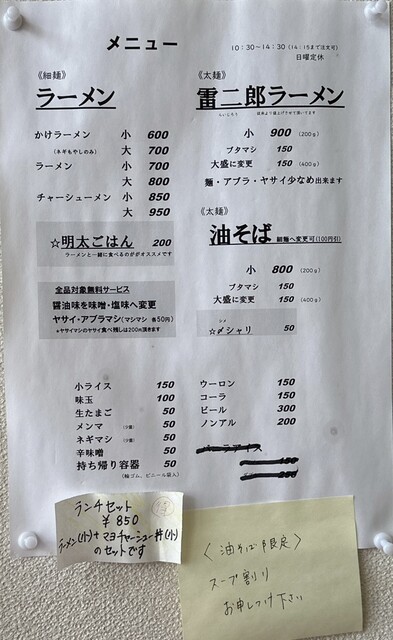 メニュー
10:30~14:30 (14:15まで注文可)
日曜定休
《細麺》
ラーメン
かけラーメン 小 600
(ネギもやしのみ) 大 700
ラーメン 小 700
大 800
チャーシューメン 小 850
大 950
☆明太ごはん 200
ラーメンと一緒に食べるのがオススメです
全品対象無料サービス
醤油味を味噌・塩味へ変更
ヤサイ・アブラマシ(マシマシ 各50円)
+ヤサイマシのヤサイ食べ残しは200円頂きます
《太麺》
雷二郎ラーメン
らいじろう
小 900 (200g)
ブタマシ 150
大盛に変更 150 (400g)
麺・アブラ・ヤサイ少なめ出来ます
《太麺》
油そば 細麺へ変更可(100円引)
小 800 (200g)
ブタマシ 150
大盛に変更 150 (400g)
シメ
☆〆シャリ 50
小ライス 150
味玉 100
生たまご 50
メンマ 50
ネギマシ 50
辛味噌 50
持ち帰り容器 50
(輪ゴム、ビニール袋入)
ウーロン 150
コーラ 150
ビール 300
ノンアル 200
ランチセット
¥850
ラーメン(小)+マヨチャーシュー丼(小)
のセットです
〈油そば限定〉
スープ割り
お申しつけ下さい